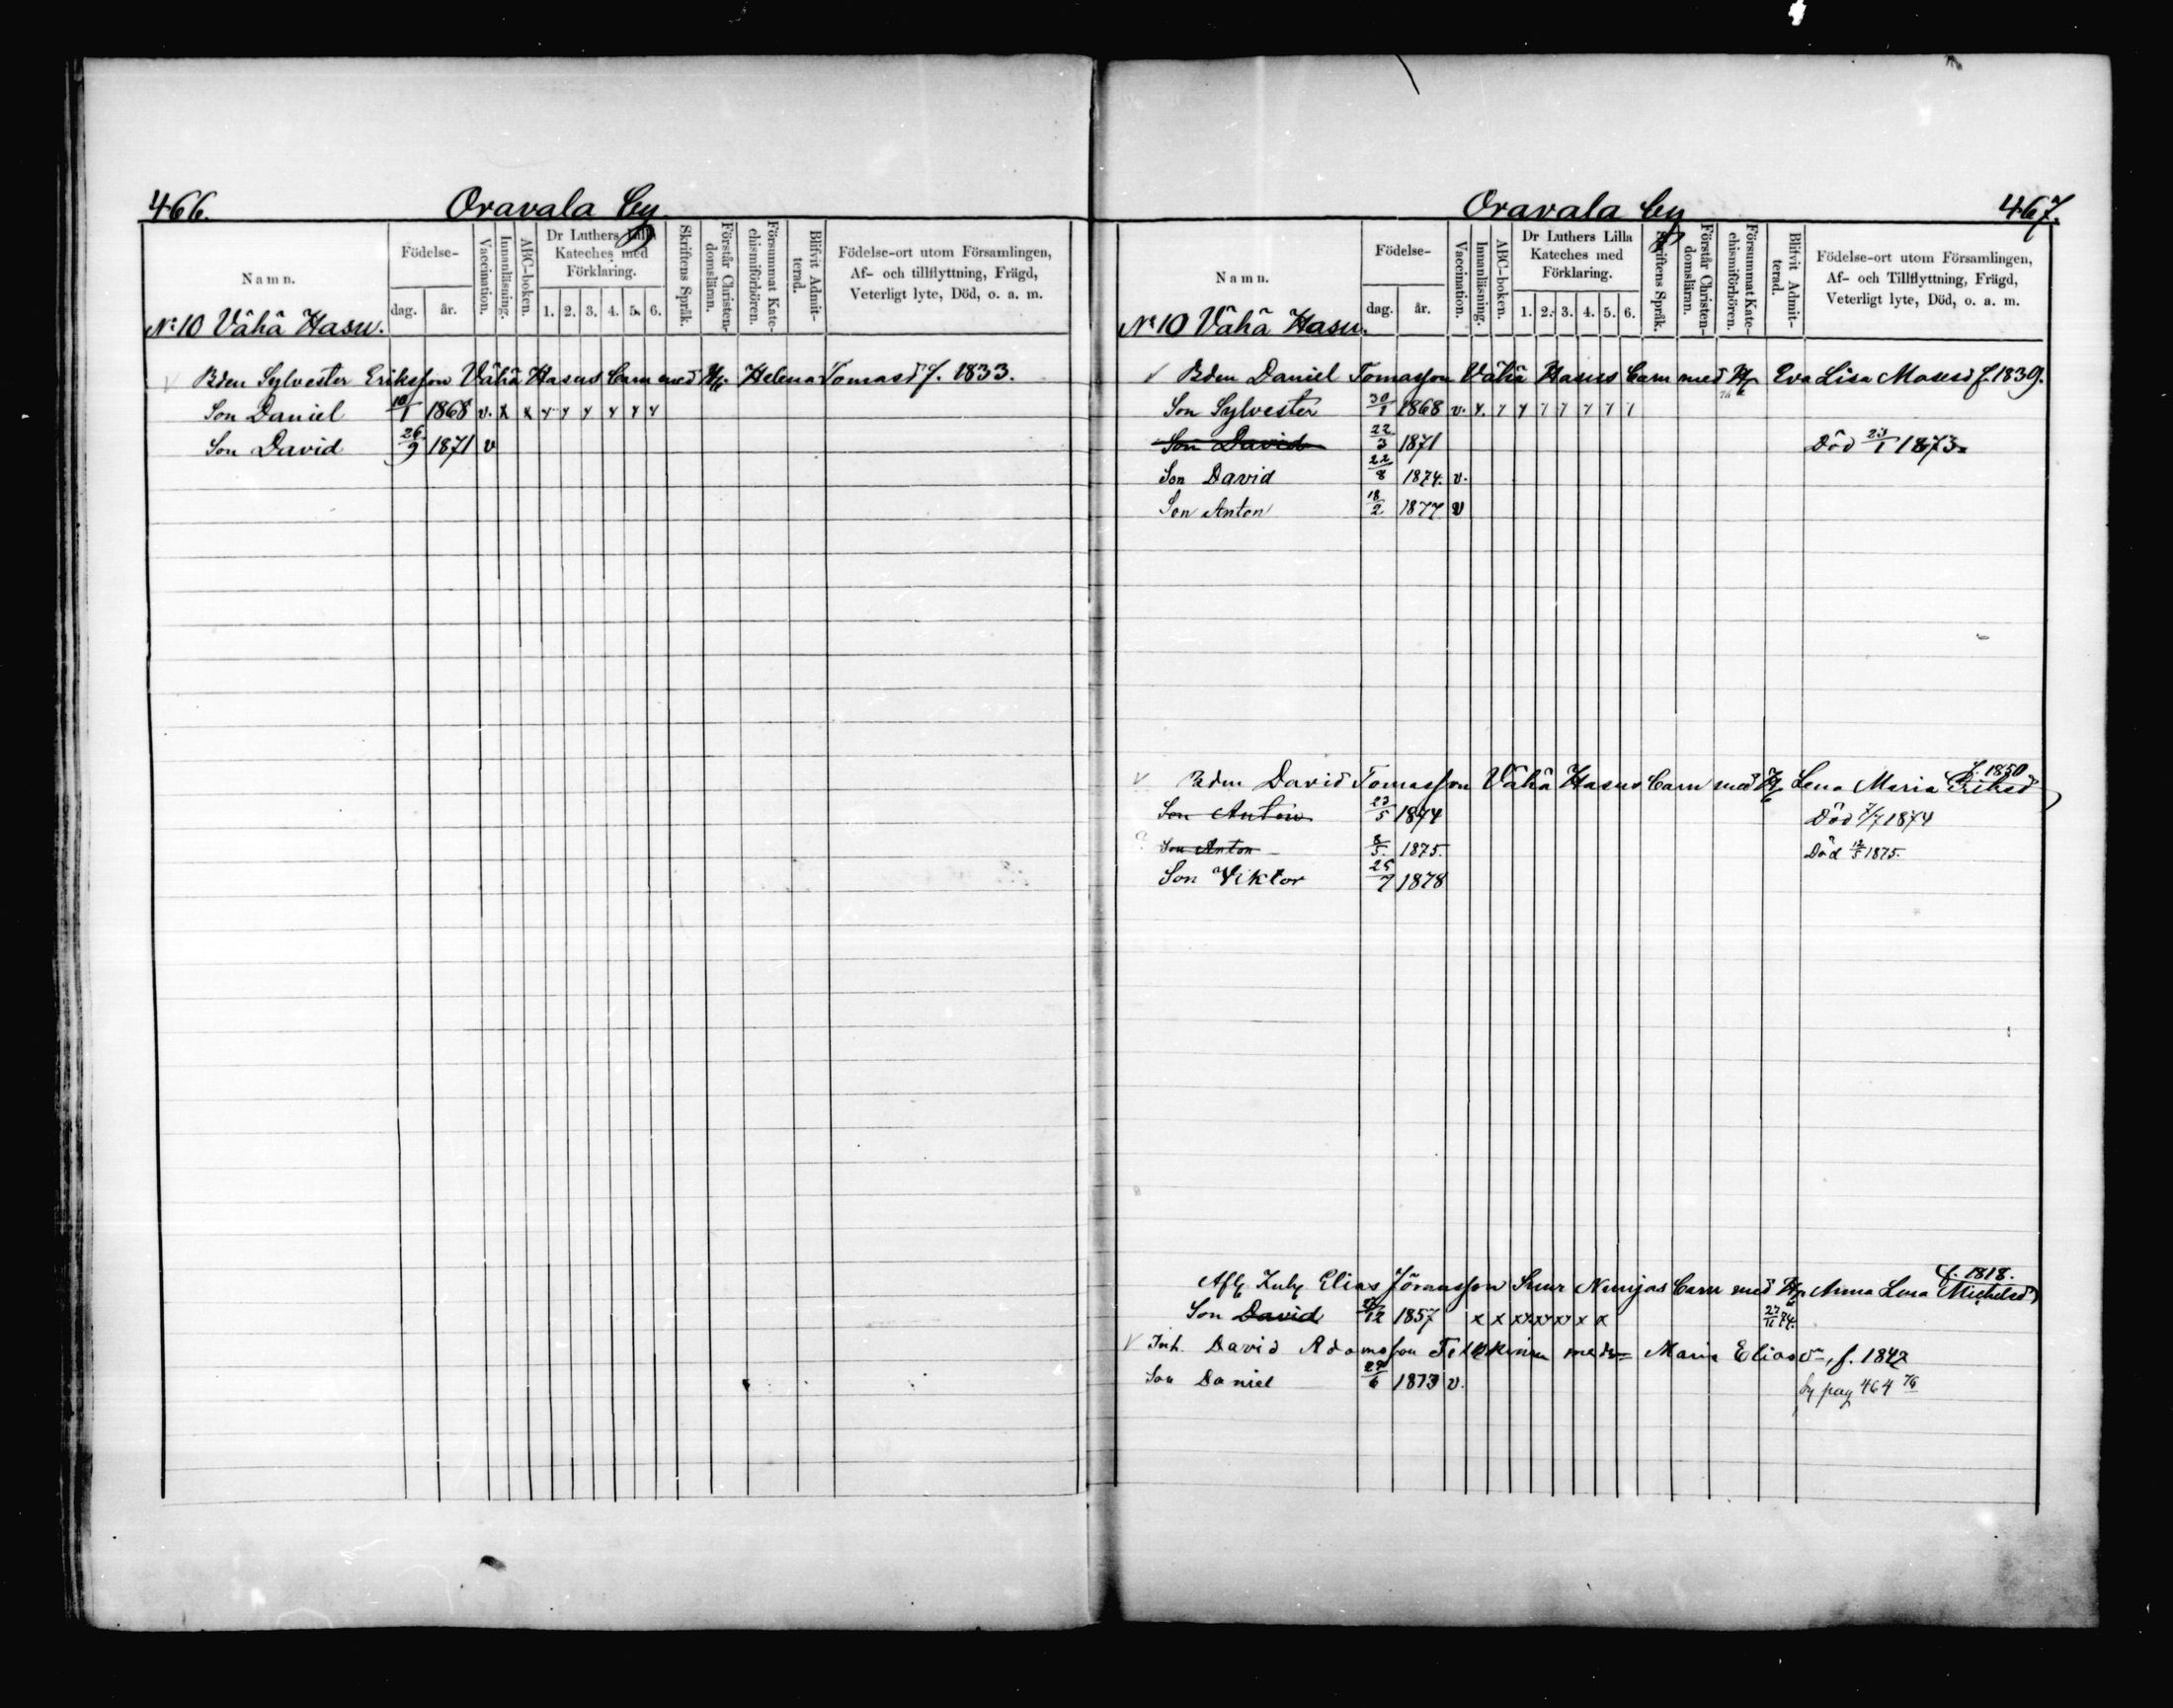 466.
Oravala by
Namn.
Födelse-
dag. år.
Vaccination.
Innanläsning.
ABC-boken.
Dr Luthers Lilla Kateches med Förklaring.
1. 2. 3. 4. 5. 6.
Skriftens Språk.
Förstår Christendomsläran.
Försummat Katechismiförhören.
Blifvit Admitterad.
Födelse-ort utom Församlingen,
Af- och tillflyttning, Frägd,
Veterligt lyte, Död, o. a. m.
No 10 Vähä Hasu.
Bden Sylvester Eriksson Vähä Hasus barn med H. Helena Tomasd f. 1833.
Son Daniel 10/1 1868 v. x x
Son David 26/9 1871 v
Oravala by
467.
Namn.
Födelse-
dag. år.
Vaccination.
Innanläsning.
ABC-boken.
Dr Luthers Lilla Kateches med Förklaring.
1. 2. 3. 4. 5. 6.
Skriftens Språk.
Förstår Christendomsläran.
Försummat Katechismiförhören.
Blifvit Admitterad.
Födelse-ort utom Församlingen,
Af- och Tillflyttning, Frägd,
Veterligt lyte, Död, o. a. m.
No 10 Vähä Hasu.
v Bden Daniel Tomasson Vähä Hasus barn med H. Eva Lisa Mosesd f. 1839.
Son Sylvester 30/1 1868 v.
Son David 22/3 1871 Död 23/1 1873
Son David 22/8 1874. v.
Son Anton 18/2 1877 v
v Bden David Tomasson Vähä Hasus barn med H. Lena Maria Eriksd f. 1850
Son Anton 23/5 1874 Död 7/7 1874
Son Anton 8/5. 1875. Död 12/5 1875.
Son Viktor 25/7 1878
Elias Jöransson Suur Nunjas barn med H. Anna Lena Michelsd f. 1818.
Son David 1857 x x x x x x x x 27/11 74.
v Inh. David Adamsson med Maria Eliasd, f. 1842
Son Daniel 1873 v. by pag 464 76